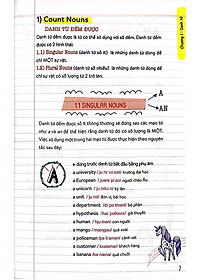 Chương 1 : Danh từ
1) Count Nouns
DANH TỪ ĐẾM ĐƯỢC
Danh từ đếm được là từ có thể sử dụng với số đếm. Danh từ đếm
được có 2 hình thái:
1.1) Singular Nouns (danh từ số ít) là những danh từ dùng để
chỉ MỘT sự vật.
1.2) Plural Nouns (danh từ số nhiều) là những danh từ dùng để
chỉ sự vật có số lượng từ 2 trở lên.
A
1.1 SINGULAR NOUNS
AN
Danh từ đếm được số ít thông thường sẽ đứng sau các mạo từ
như a và an để thể hiện rằng danh từ đó có số lượng là MỘT.
Việc sử dụng một trong hai mạo từ được thực hiện theo nguyên
tắc sau đây:
A
a đứng trước danh từ bắt đầu bằng phụ âm
a university
a European người châu Âu
a unicorn kỳ lân
a unit đơn vị, bài học
a department bộ phận
a hypothesis giả thuyết
a human con người
a mango quả xoài
a policeman cảnh sát
a customer khách hàng
a banana quả chuối
7